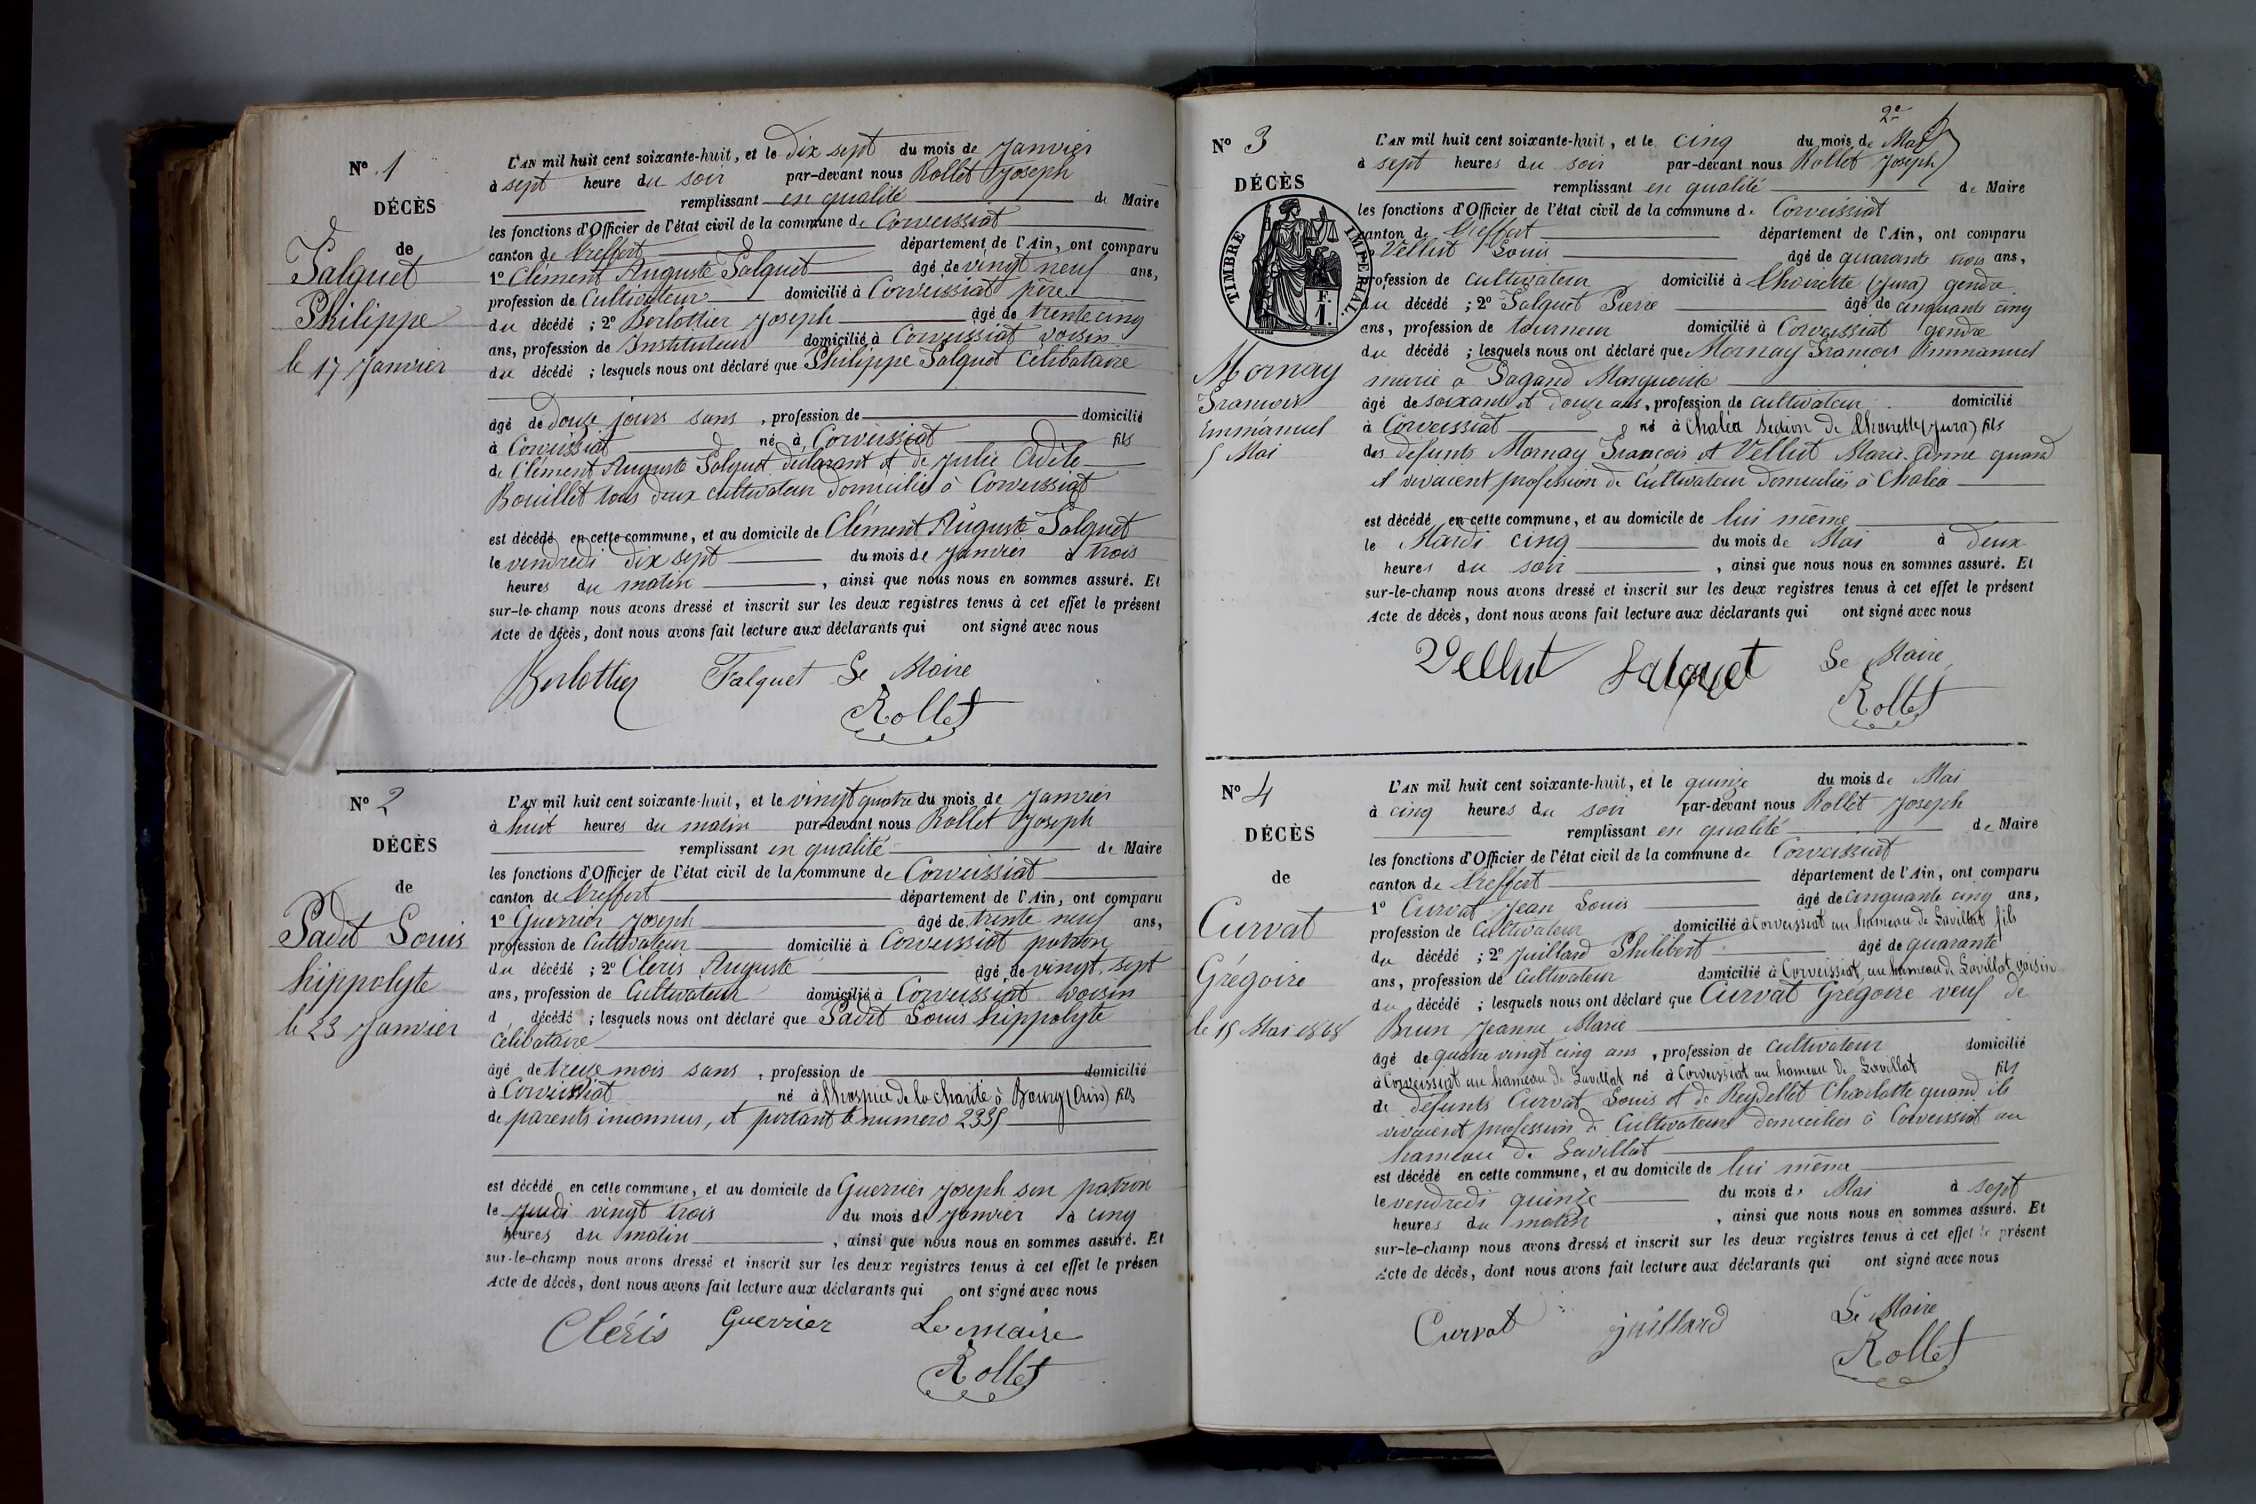 N° 1
DÉCÈS
de
Falquet
Philippe
le 17 Janvier
L'AN mil huit cent soixante-huit, et le dix sept du mois de Janvier
à sept heure du soir par-devant nous Rollet Joseph
remplissant en qualité de Maire
les fonctions d'Officier de l'état civil de la commune de Corveissiat
canton de Treffort département de l'Ain, ont comparu
1° Clément Auguste Falquet âgé de vingt neuf ans,
profession de Cultivateur domicilié à Corveissiat père
du décédé ; 2° Berlottier Joseph âgé de trente cinq
ans, profession de Instituteur domicilié à Corveissiat voisin
du décédé ; lesquels nous ont déclaré que Philippe Falquet Célibataire
âgé de douze jours sans , profession de domicilié
à Corveissiat né à Corveissiat fils
de Clément Auguste Falquet déclarant et de Julie Adèle
Bouillet tous deux cultivateur domiciliés à Corveissiat
est décédé en cette commune, et au domicile de Clément Auguste Falquet
le vendredi dix sept du mois de Janvier à trois
heures du matin , ainsi que nous nous en sommes assuré. Et
sur-le-champ nous avons dressé et inscrit sur les deux registres tenus à cet effet le présent
Acte de décès, dont nous avons fait lecture aux déclarants qui ont signé avec nous
Berlottier Falquet Le Maire
Rollet
N° 2
DÉCÈS
de
Padet Louis
hippolyte
le 23 Janvier
L'AN mil huit cent soixante-huit, et le vingt quatre du mois de Janvier
à huit heures du matin par-devant nous Rollet Joseph
remplissant en qualité de Maire
les fonctions d'Officier de l'état civil de la commune de Corveissiat
canton de Treffort département de l'Ain, ont comparu
1° Guerrier Joseph âgé de trente neuf ans,
profession de Cultivateur domicilié à Corveissiat patron
du décédé ; 2° Cléris Auguste âgé de vingt sept
ans, profession de Cultivateur domicilié à Corveissiat voisin
d décédé ; lesquels nous ont déclaré que Padet Louis hippolyte
Célibataire
âgé de treize mois sans , profession de domicilié
à Corveissiat né à l'hospice de la charité à Bourg (Ain) fils
de parents inconnus, et portant le numero 2335
est décédé en cette commune, et au domicile de Guerrier Joseph son patron
le Jeudi vingt trois du mois de Janvier à cinq
heures du matin , ainsi que nous nous en sommes assuré. Et
sur-le-champ nous avons dressé et inscrit sur les deux registres tenus à cet effet le présen
Acte de décès, dont nous avons fait lecture aux déclarants qui ont signé avec nous
Cléris Guerrier Le maire
Rollet
2e
N° 3
DÉCÈS
TIMBRE IMPÉRIAL.
F.
1.
Mornay
Francois
Emmanuel
5 Mai
L'AN mil huit cent soixante-huit, et le cinq du mois de Mai
à sept heures du soir par-devant nous Rollet Joseph
remplissant en qualité de Maire
les fonctions d'Officier de l'état civil de la commune de Corveissiat
canton de Treffort département de l'Ain, ont comparu
Vellut Louis âgé de quarante trois ans,
profession de cultivateur domicilié à Thoirette (Jura) gendre
du décédé ; 2° Falquet Pierre âgé de cinquante cinq
ans, profession de tourneur domicilié à Corveissiat gendre
du décédé ; lesquels nous ont déclaré que Mornay Francois Emmanuel
marié a Pagand Marguerite
âgé de soixante et douze ans, profession de cultivateur domicilié
à Corveissiat né à Chaléa section de Thoirette (Jura) fils
des défunts Mornay François et Vellut Marie Anne quand
il vivaient profession de Cultivateur domiciliés à Chaléa
est décédé en cette commune, et au domicile de lui même
le Mardi cinq du mois de Mai à deux
heures du soir , ainsi que nous nous en sommes assuré. Et
sur-le-champ nous avons dressé et inscrit sur les deux registres tenus à cet effet le présent
Acte de décès, dont nous avons fait lecture aux déclarants qui ont signé avec nous
Vellut Falquet Le Maire
Rollet
N° 4
DÉCÈS
de
Curvat
Grégoire
le 15 Mai 1868
L'AN mil huit cent soixante-huit, et le quinze du mois de Mai
à cinq heures du soir par-devant nous Rollet Joseph
remplissant en qualité de Maire
les fonctions d'Officier de l'état civil de la commune de Corveissiat
canton de Treffort département de l'Ain, ont comparu
1° Curvat Jean Louis âgé de cinquante cinq ans,
profession de Cultivateur domicilié à Corveissiat au hameau de Lavillat fils
du décédé ; 2° Juillard Philibert âgé de quarante
ans, profession de Cultivateur domicilié à Corveissiat au hameau de Lavillat voisin
du décédé ; lesquels nous ont déclaré que Curvat Grégoire veuf de
Brun Jeanne Marie
âgé de quatre vingt cinq ans , profession de cultivateur domicilié
à Corveissiat au hameau de Lavillat né à Corveissiat au hameau de Lavillat fils
de défunts Curvat Louis et de Reydellet Charlotte quand ils
vivaient profession de Cultivateurs domiciliés à Corveissiat au
hameau de Lavillat
est décédé en cette commune, et au domicile de lui même
le vendredi quinze du mois de Mai à sept
heures du matin , ainsi que nous nous en sommes assuré. Et
sur-le-champ nous avons dressé et inscrit sur les deux registres tenus à cet effet le présent
Acte de décès, dont nous avons fait lecture aux déclarants qui ont signé avec nous
Curvat juillard Le Maire
Rollet